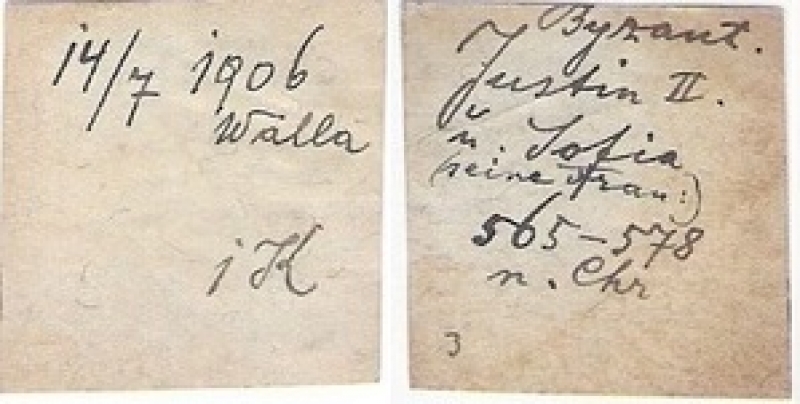 14/7 1906
Walla
1 K
Byzant.
Justin II.
u. Sofia
(seine Frau:)
565-578
n. Chr
3